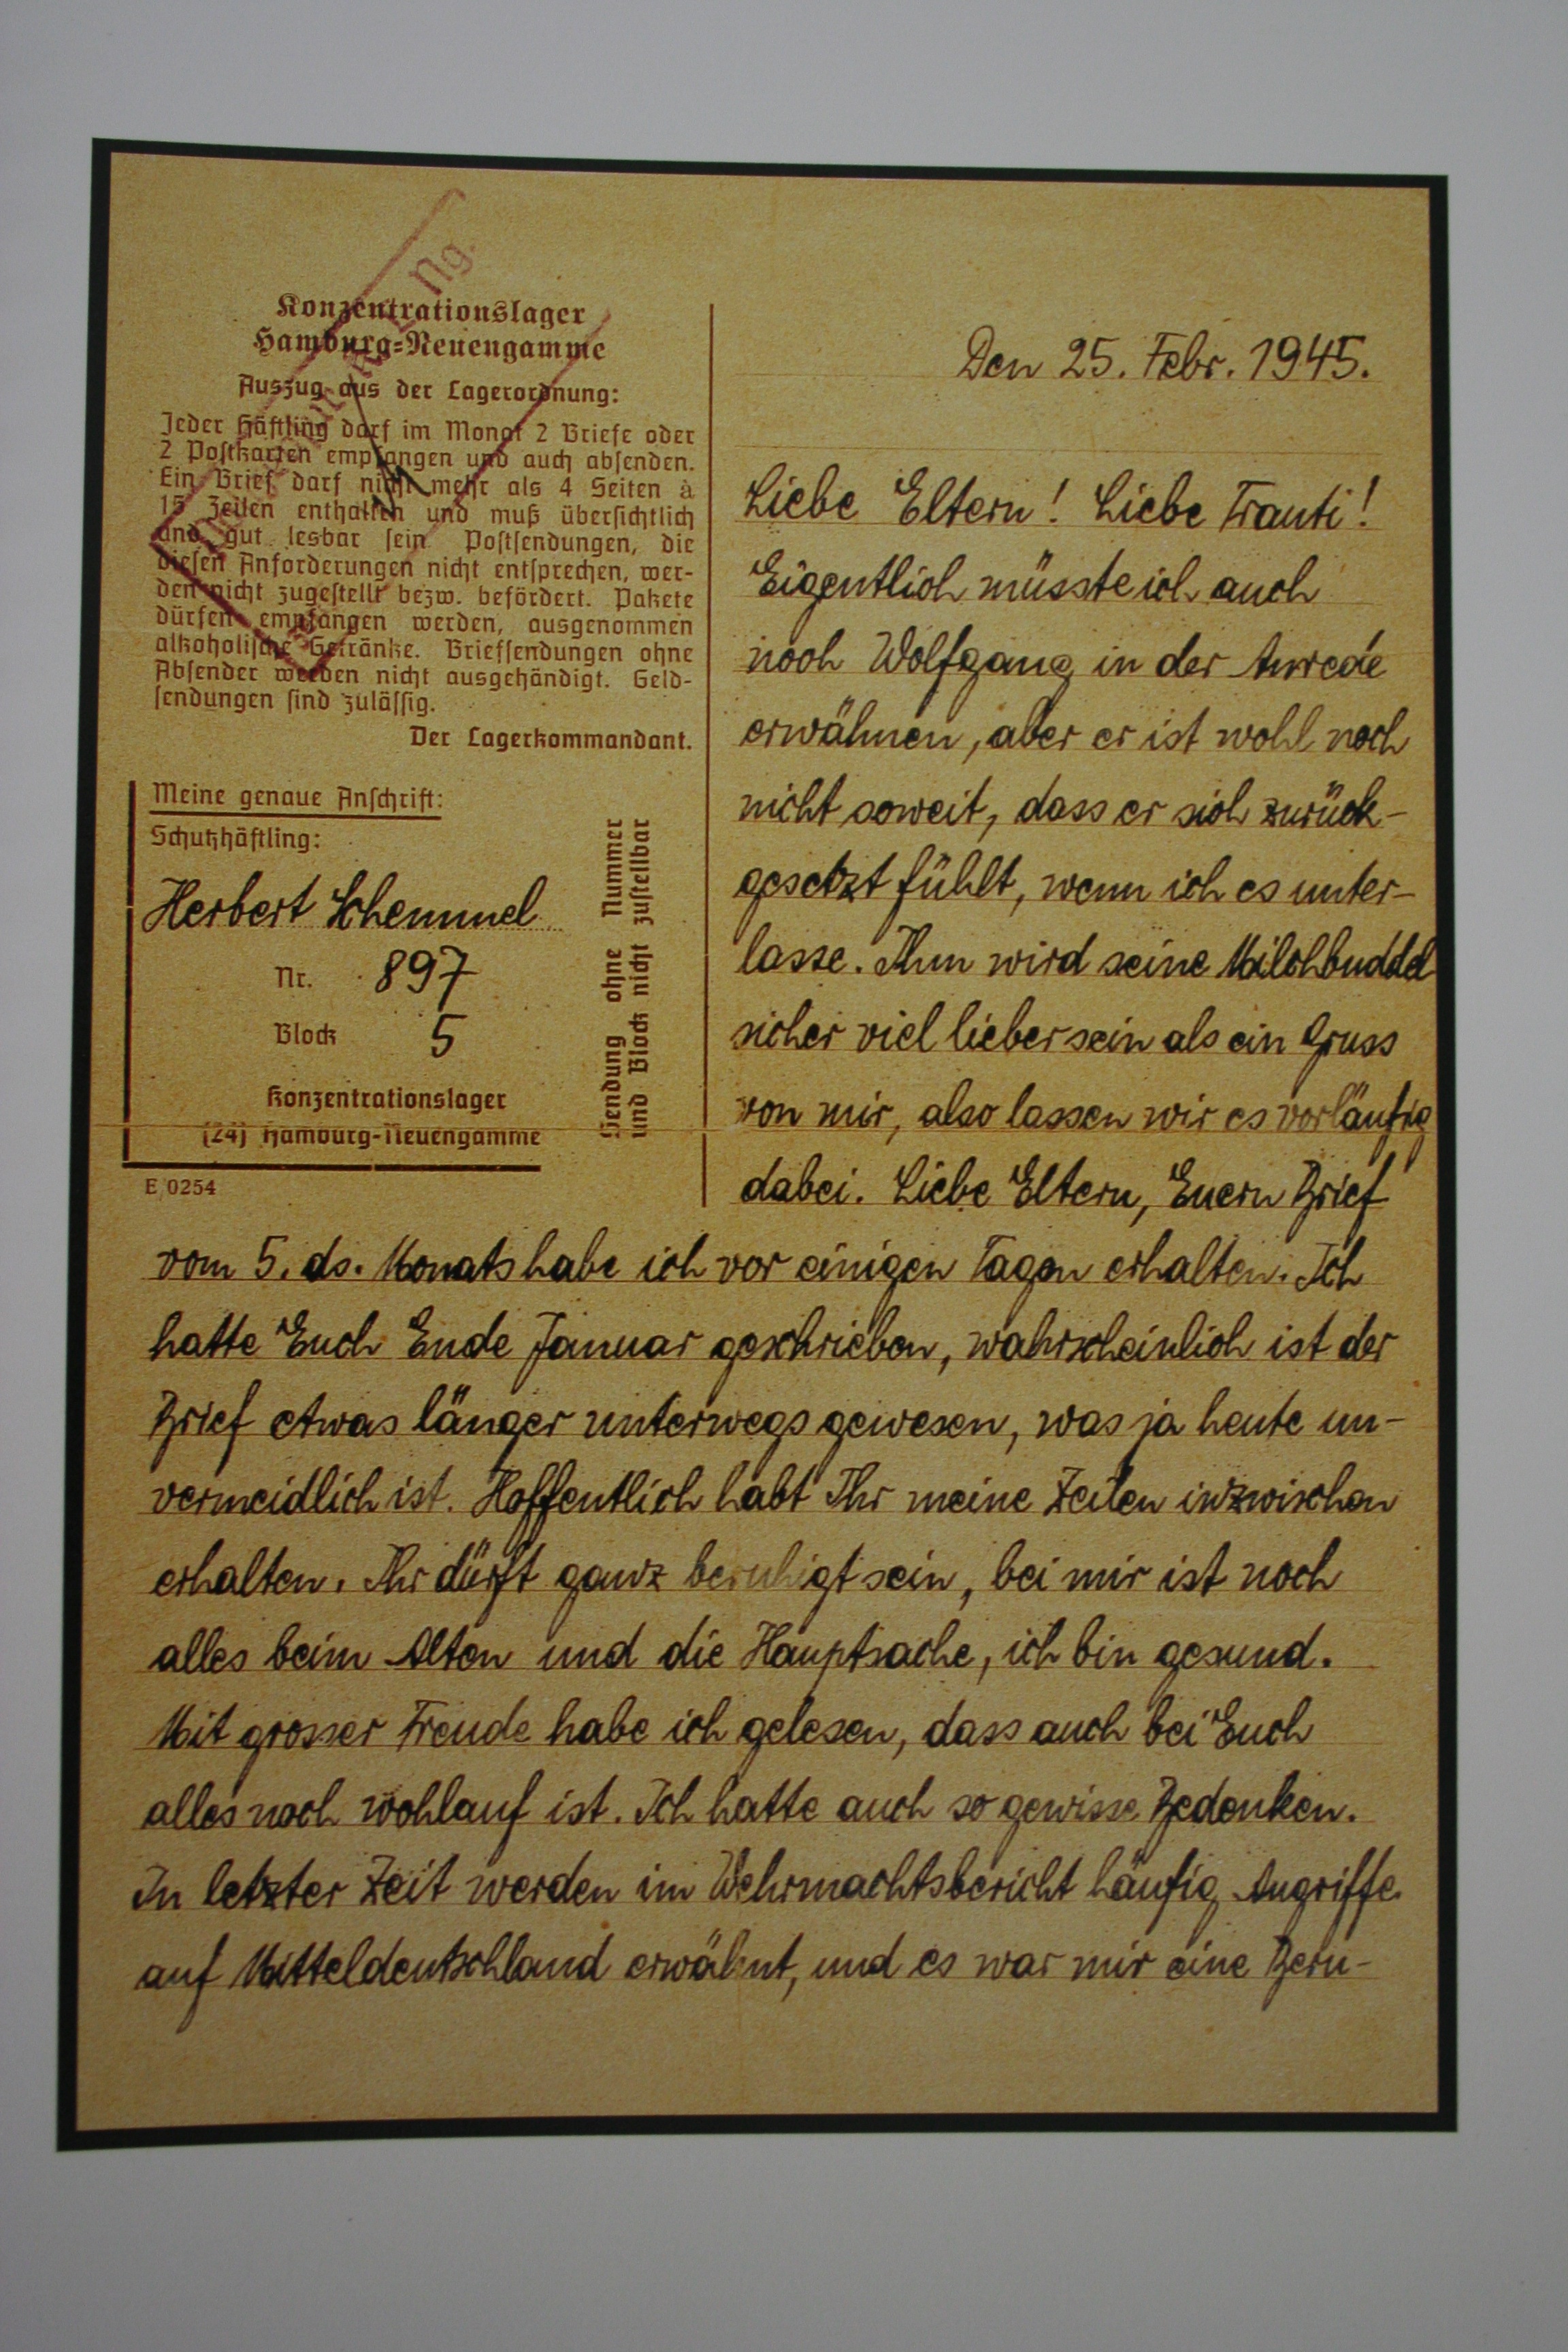 Konzentrationslager
Hamburg-Neuengamme
Auszug aus der Lagerordnung:
Jeder Häftling darf im Monat 2 Briefe oder
2 Postkarten empfangen und auch absenden.
Ein Brief darf nicht mehr als 4 Seiten à
15 Zeilen enthalten und muß übersichtlich
und gut lesbar sein. Postsendungen, die
diesen Anforderungen nicht entsprechen, wer-
den nicht zugestellt bezw. befördert. Pakete
dürfen empfangen werden, ausgenommen
alkoholische Getränke. Briefsendungen ohne
Absender werden nicht ausgehändigt. Geld-
sendungen sind zulässig.
Der Lagerkommandant.
Meine genaue Anschrift:
Schutzhäftling:
Herbert Schemmel
Nr. 897
Block 5
Konzentrationslager
(24) Hamburg-Neuengamme
Sendung ohne Nummer
und Block nicht zustellbar
E 0254
Ng.
Den 25. Febr. 1945.
Liebe Eltern! Liebe Trauti!
Eigentlich müsste ich auch
noch Wolfgang in der Anrede
erwähnen, aber er ist wohl noch
nicht soweit, dass er sich zurück-
gesetzt fühlt, wenn ich es unter-
lasse. Ihm wird seine Milchbuddel
sicher viel lieber sein als ein Gruss
von mir, also lassen wir es vorläufig
dabei. Liebe Eltern, Euern Brief
vom 5. ds. Monats habe ich vor einigen Tagen erhalten. Ich
hatte Euch Ende Januar geschrieben, wahrscheinlich ist der
Brief etwas länger unterwegs gewesen, was ja heute un-
vermeidlich ist. Hoffentlich habt Ihr meine Zeilen inzwischen
erhalten. Ihr dürft ganz beruhigt sein, bei mir ist noch
alles beim Alten und die Hauptsache, ich bin gesund.
Mit grosser Freude habe ich gelesen, dass auch bei Euch
alles noch wohlauf ist. Ich hatte auch so gewisse Bedenken.
In letzter Zeit werden im Wehrmachtsbericht häufig Angriffe
auf Mitteldeutschland erwähnt, und es war mir eine Beru-